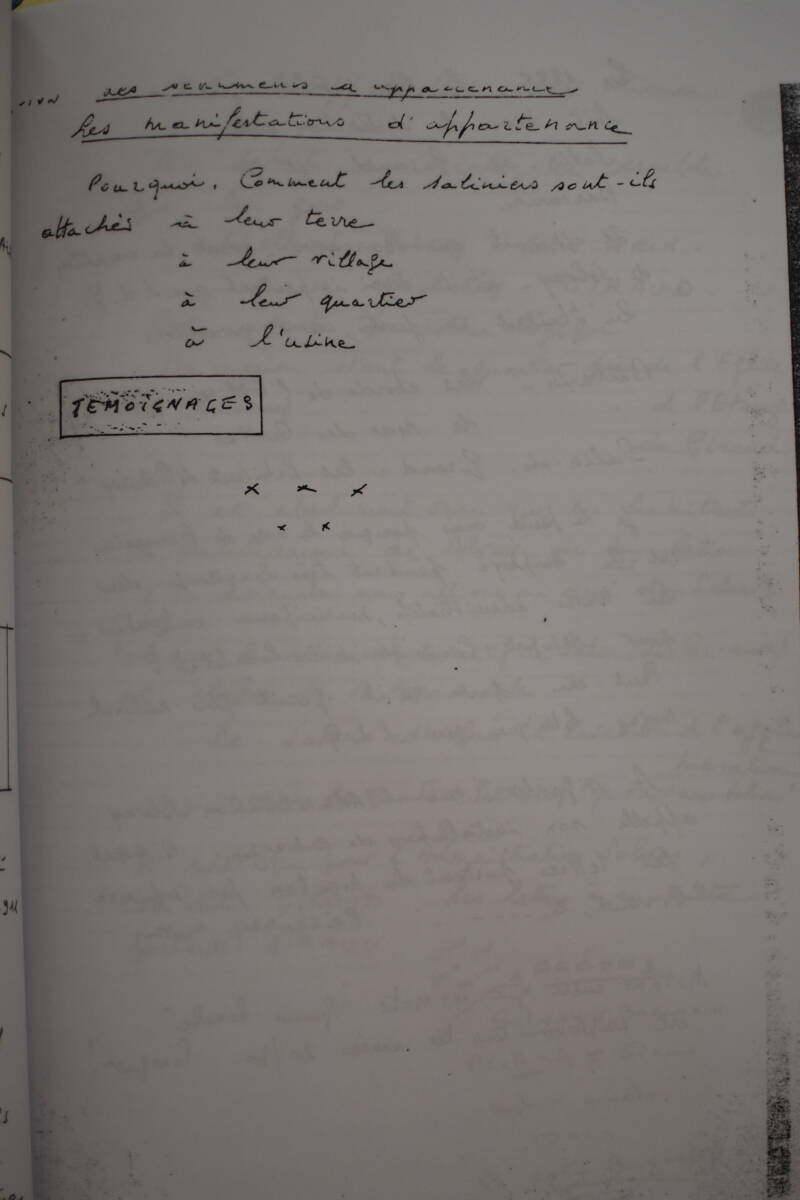 Les sentiments d'appartenance
Les manifestations d'appartenance
Pourquoi, Comment les saliniers sont-ils
attachés à leur terre
à leur village
à leur quartier
à l'usine
TEMOIGNAGES